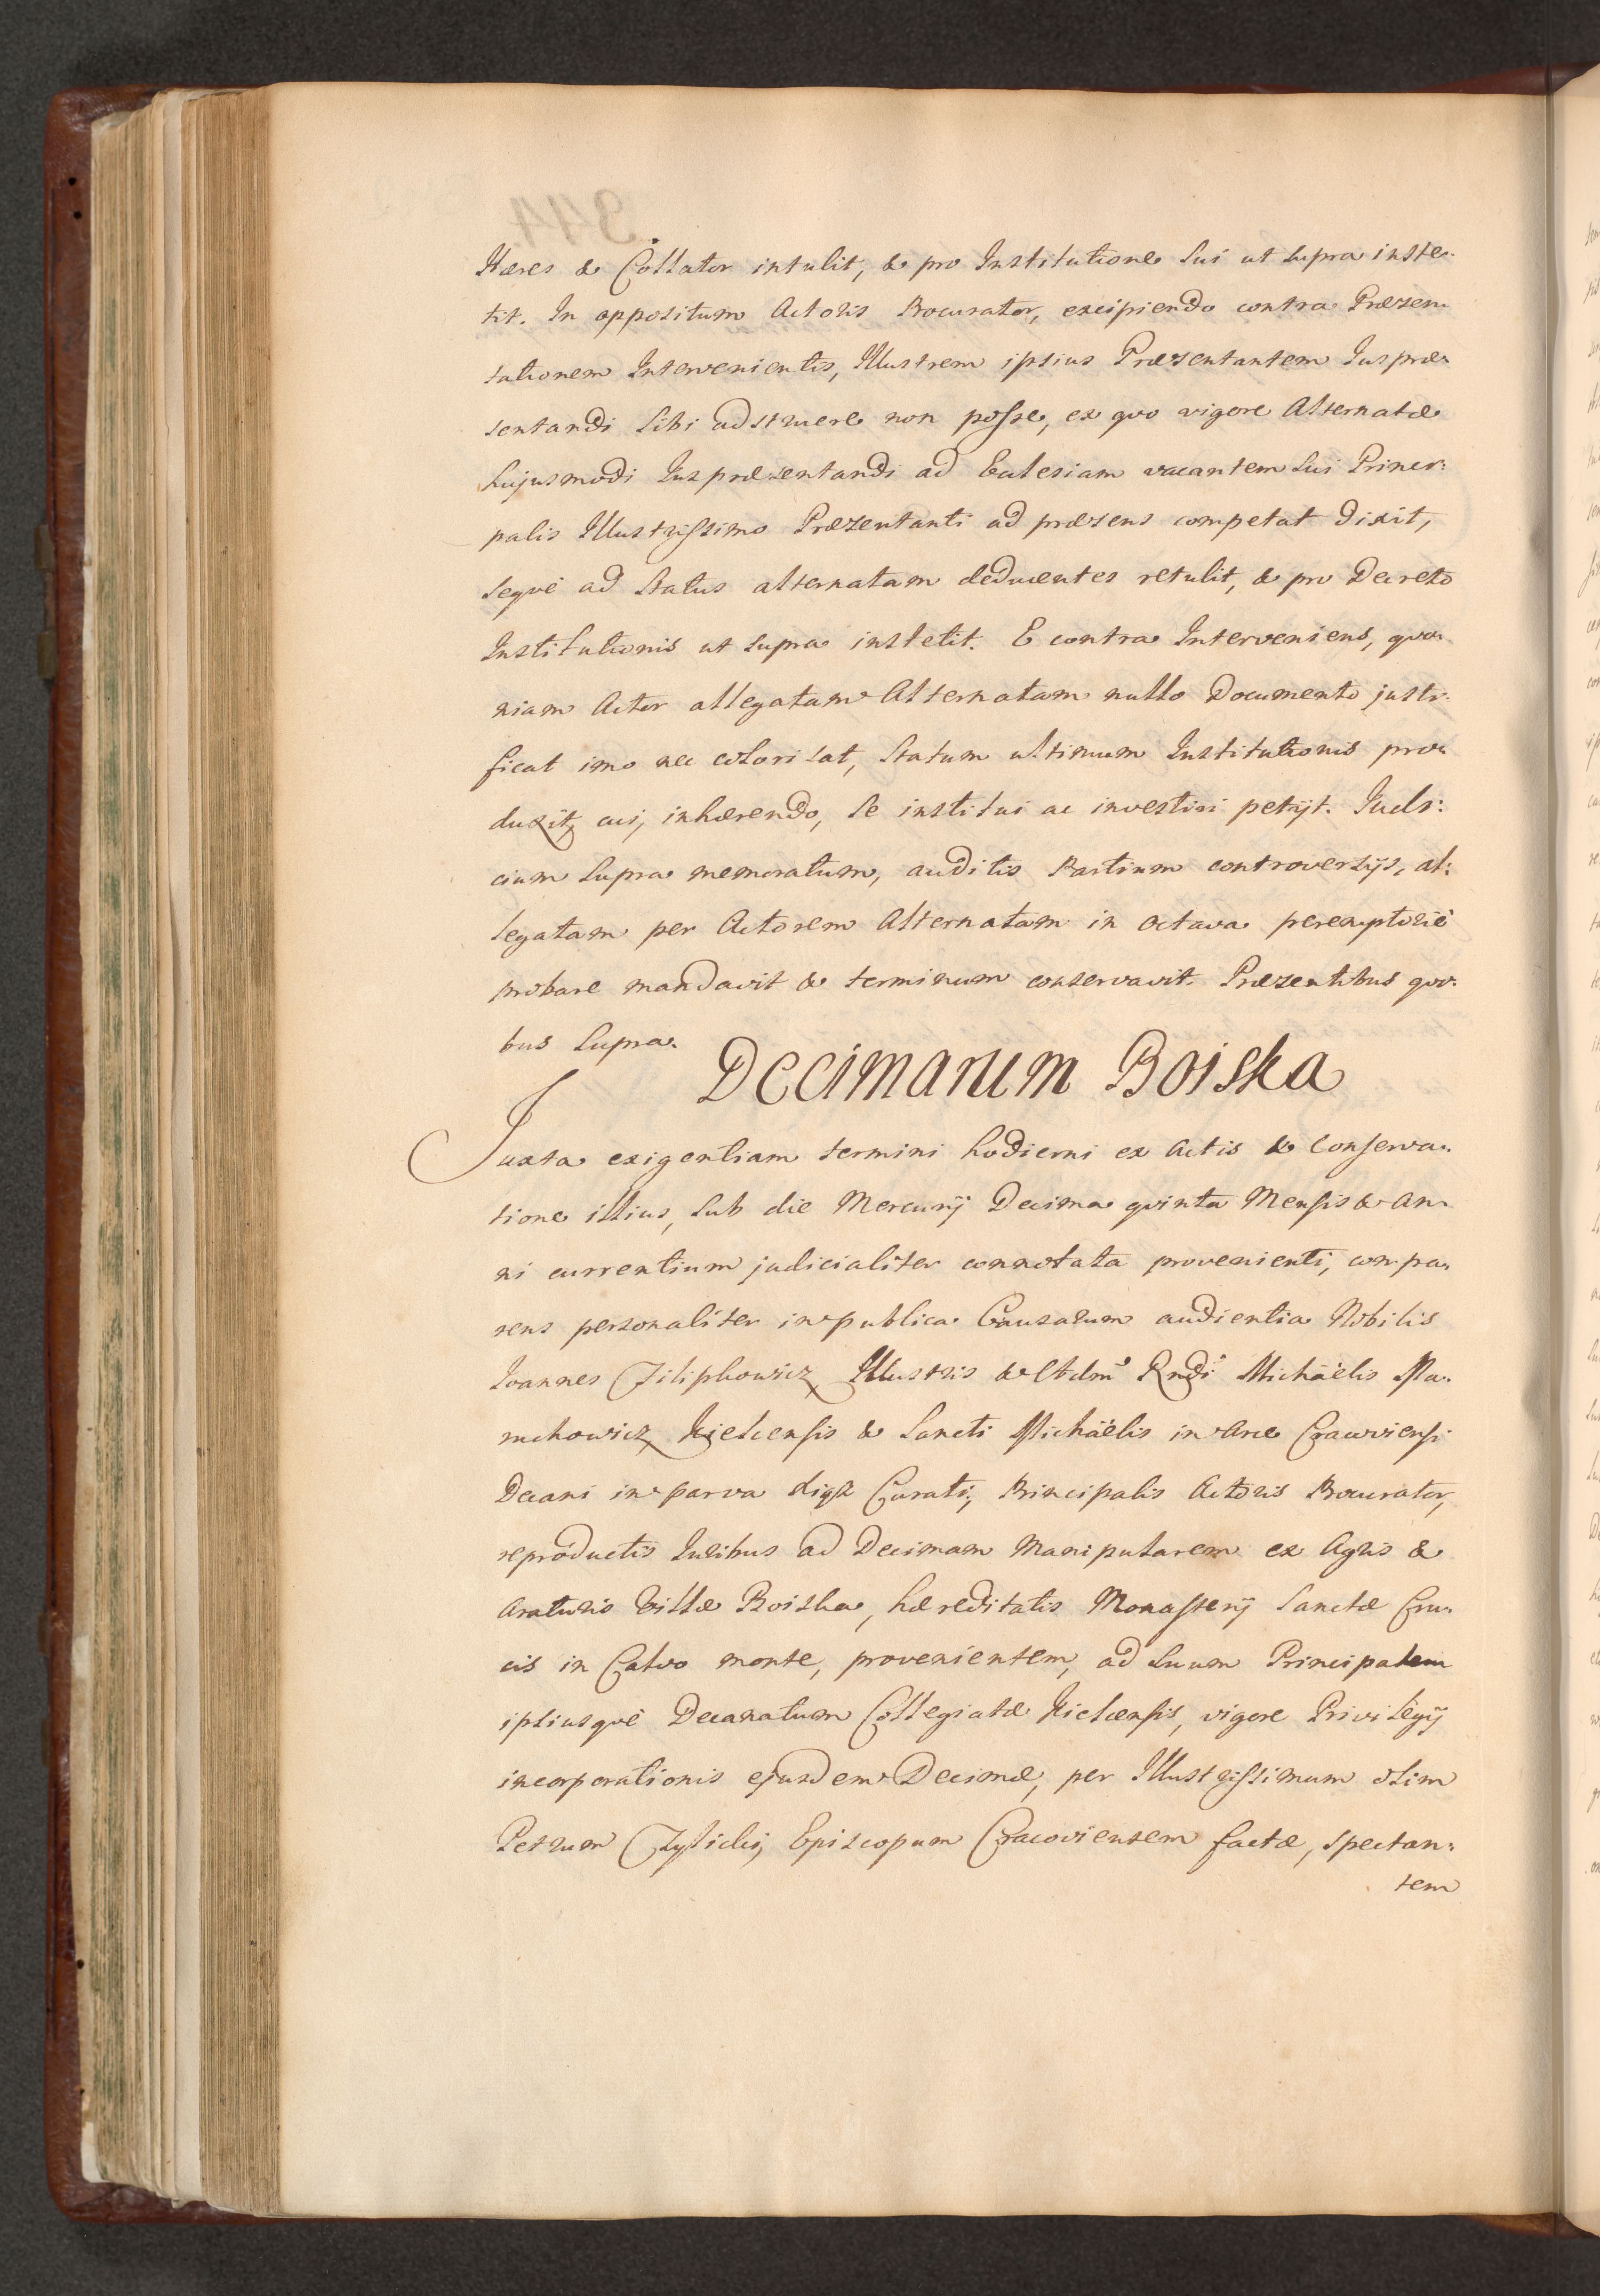 Hæres & Collator intulit, & pro Institutione sui ut supra inste-
tit. In oppositum Actoris Procurator, excipiendo contra Præsen-
tationem Intervenientis, Illustrem ipsius Præsentantem Jus præ-
sentandi sibi adstruere non posse, ex quo vigore Alternatæ
hujusmodi Jus præsentandi ad Ecclesiam vacantem sui Princi-
palis Illustrissimo Præsentanti ad præsens competat dixit,
seque ad Status alternatam deducentes retulit, & pro Decreto
Institutionis ut supra institit. E contra Interveniens, quo-
niam Actor allegatam Alternatam nullo Documento justi-
ficat imo nec colorisat, Statum ultimum Institutionis pro-
duxit, cui, inhærendo, se institui ac investiri petijt. Judi-
cium supra memoratum, auditis Partium controversijs, al-
legatam per Actorem Alternatam in octava peremptorie
probare mandavit & terminum conservavit. Præsentibus qui-
bus supra.
Decimarum Boiska
Juxta exigentiam termini hodierni ex Actis & Conserva-
tione illius, sub die Mercurij Decima quinta Mensis & An-
ni currentium judicialiter connotata provenienti, compa-
rens personaliter in publica Causarum audientia Nobilis
Joannes Filiphowicz Illustris & Adm̃ Rndi Michaëlis
Kielcensis & Sancti Michaëlis in Arce Cracoviensi
Decani in parva Curati, Principalis Actoris Procurator,
reproductis Juribus ad Decimam Manipularem ex Agris &
Araturis Villæ Boiska, hæreditatis Monasterij Sanctæ Cru-
cis in Calvo monte, provenientem, ad suum Principalem
ipsiusque Decanatum Collegiatæ Kielcensis, vigore Privilegij
incorporationis ejusdem Decimæ, per Illustrissimum olim
Petrum Episcopum Cracoviensem factæ, spectan-
tem